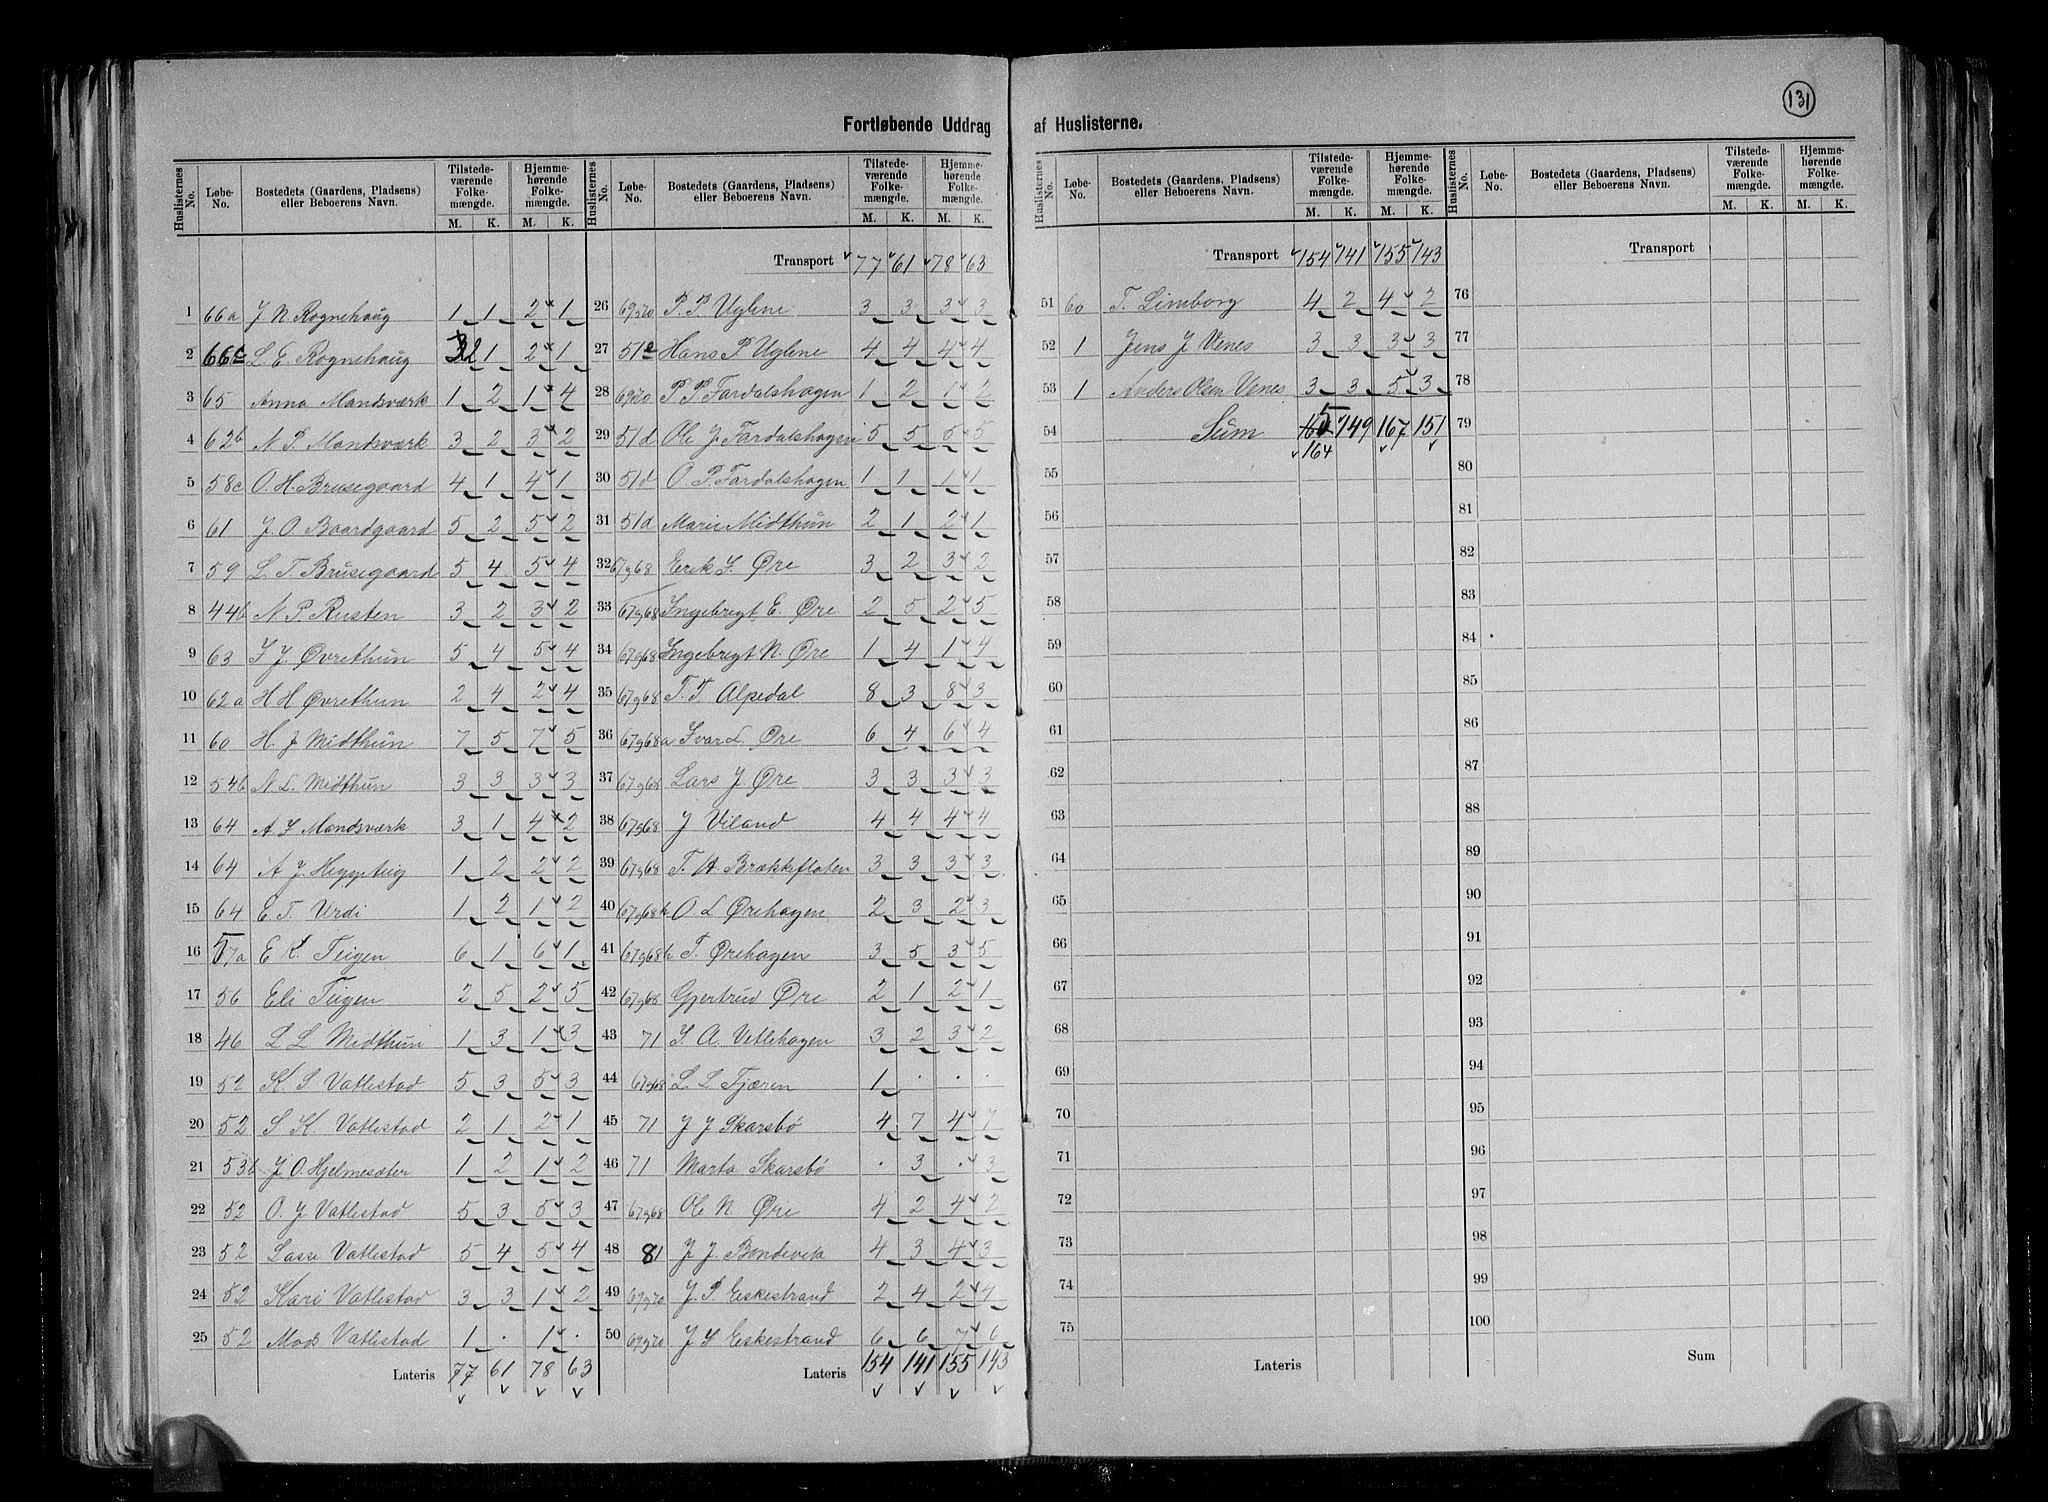 131
Fortløbende Uddrag af Huslisterne.
Huslisternes No. Løbe-No. Bostedets (Gaardens, Pladsens) eller Beboerens Navn. Tilstedeværende Folkemængde. M. K. Hjemmehørende Folkemængde. M. K.
1 66a J N Rognehaug 1 1 2 1
2 66c L. E. Rognehaug 2 1 2 1
3 65 Anna Mandsværk 1 2 1 4
4 62b N. P. Mandsværk 3 2 3 2
5 58c O. H. Brusegaard 4 1 4 1
6 61 J. O. Baardgaard 5 2 5 2
7 59 L. T. Brusegaard 5 4 5 4
8 44b N. P. Rusten 3 2 3 2
9 63 J J. Øvrethun 5 4 5 4
10 62a H H. Øvrethun 2 4 2 4
11 60 H. J Midthun 7 5 7 5
12 54b N. L. Midthun 3 3 3 3
13 64 A. J Mandsværk 3 1 4 2
14 64 A J. 1 2 2 2
15 64 E. T. Urdi 1 2 1 2
16 57a E K. Teigen 6 1 6 1
17 56 Eli Teigen 2 5 2 5
18 46 L L Midthun 1 3 1 3
19 52 K S Vatlestad 5 3 5 3
20 52 S K Vatlestad 2 1 2 1
21 53b J. O. Hjelmesæter 1 2 1 2
22 52 O. J Vatlestad 5 3 5 3
23 52 Lasse Vatlestad 5 4 5 4
24 52 Kari Vatlestad 3 3 1 2
25 52 Mads Vatlestad 1 . 1 .
Lateris 77 61 78 63
Huslisternes No. Løbe-No. Bostedets (Gaardens, Pladsens) eller Beboerens Navn. Tilstedeværende Folkemængde. M. K. Hjemmehørende Folkemængde. M. K.
Transport 77 61 78 63
26 69g70 P. P. Uglene 3 3 3 3
27 51e Hans P. Uglene 4 4 4 4
28 69g70 P. P. Fardalshagen 1 2 1 2
29 51d Ole J. Fardalshagen 5 5 5 5
30 51d O. P. Fardalshagen 1 1 1 1
31 51d Marie Midthun 2 1 2 1
32 67g68 Erik J. Øre 3 2 3 2
33 67g68 Ingebregt E. Øre 2 5 2 5
34 67g68 Ingebregt N. Øre 1 4 1 4
35 67g68 T. T. Alpedal 8 3 8 3
36 67g68a Ivar L. Øre 6 4 6 4
37 67g68 Lars J. Øre 3 3 3 3
38 67g68 J Viland 4 4 4 4
39 67g68 T. A. Brækkefloten 3 3 3 3
40 67g68h O L Ørehagen 2 3 2 3
41 67g68h T. Ørehagen 3 5 3 5
42 67g68 Gjertrud Øre 2 1 2 1
43 71 J. A. Vetlehagen 3 2 3 2
44 67g68 L. L Tjæren 1 . . .
45 71 J J Skarsbø 4 7 4 7
46 71 Marta Skarsbø . 3 . 3
47 67g68 Ole N. Øre 4 2 4 2
48 81 J J. Bondevik 4 3 4 3
49 69g70 J. P. Eskestrand 2 4 2 4
50 69g70 J S Eskestrand 6 6 7 6
Lateris 154 141 155 143
Huslisternes No. Løbe-No. Bostedets (Gaardens, Pladsens) eller Beboerens Navn. Tilstedeværende Folkemængde. M. K. Hjemmehørende Folkemængde. M. K.
Transport 154 141 155 143
51 60 T. Linborg 4 2 4 2
52 1 Jens J Venes 3 3 3 3
53 1 Anders Olsen Venes 3 3 5 3
54 Sum 165 149 167 151
164
55
56
57
58
59
60
61
62
63
64
65
66
67
68
69
70
71
72
73
74
75
Lateris
Huslisternes No. Løbe-No. Bostedets (Gaardens, Pladsens) eller Beboerens Navn. Tilstedeværende Folkemængde. M. K. Hjemmehørende Folkemængde. M. K.
Transport
76
77
78
79
80
81
82
83
84
85
86
87
88
89
90
91
92
93
94
95
96
97
98
99
100
Sum